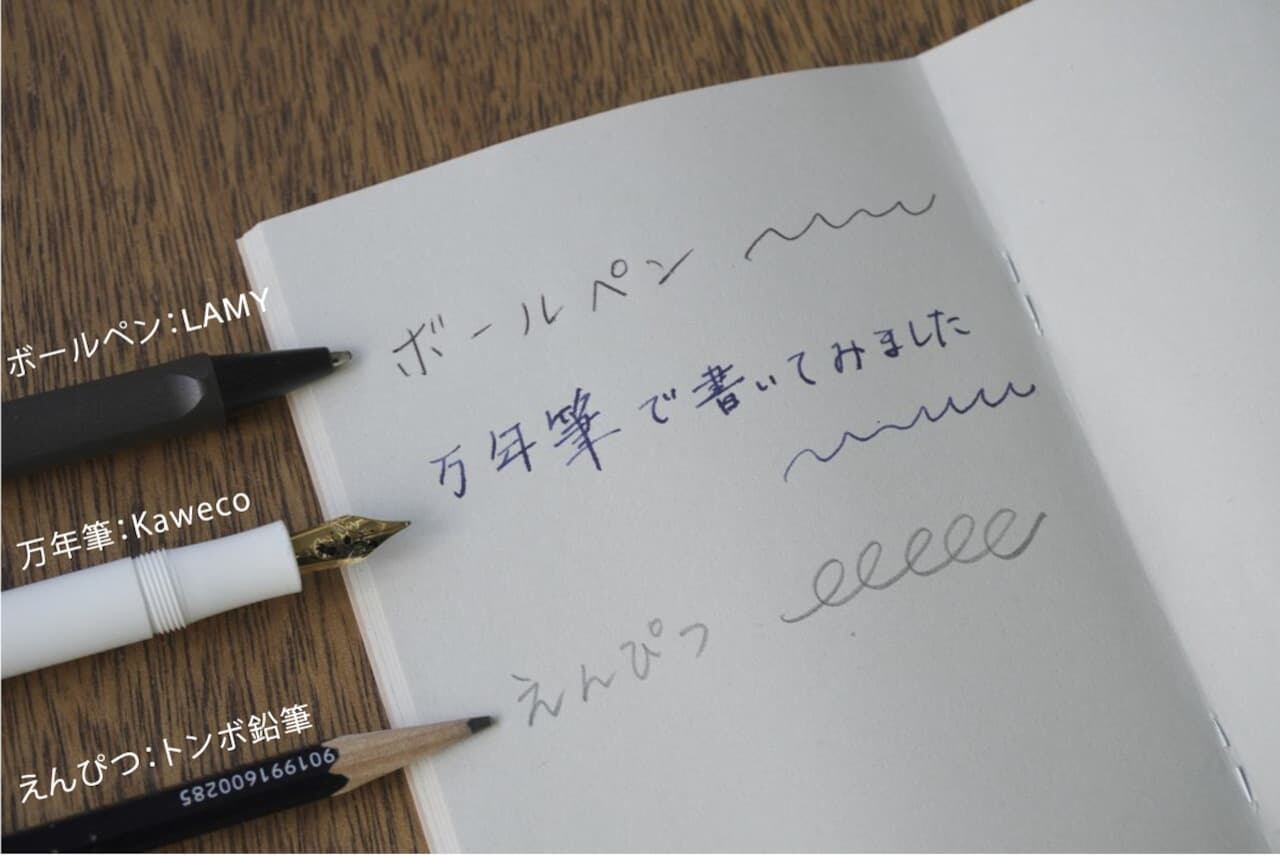 ボールペン
ボールペン：LAMY
万年筆で書いてみました
万年筆：Kaweco
えんぴつ
えんぴつ：トンボ鉛筆
901991600285